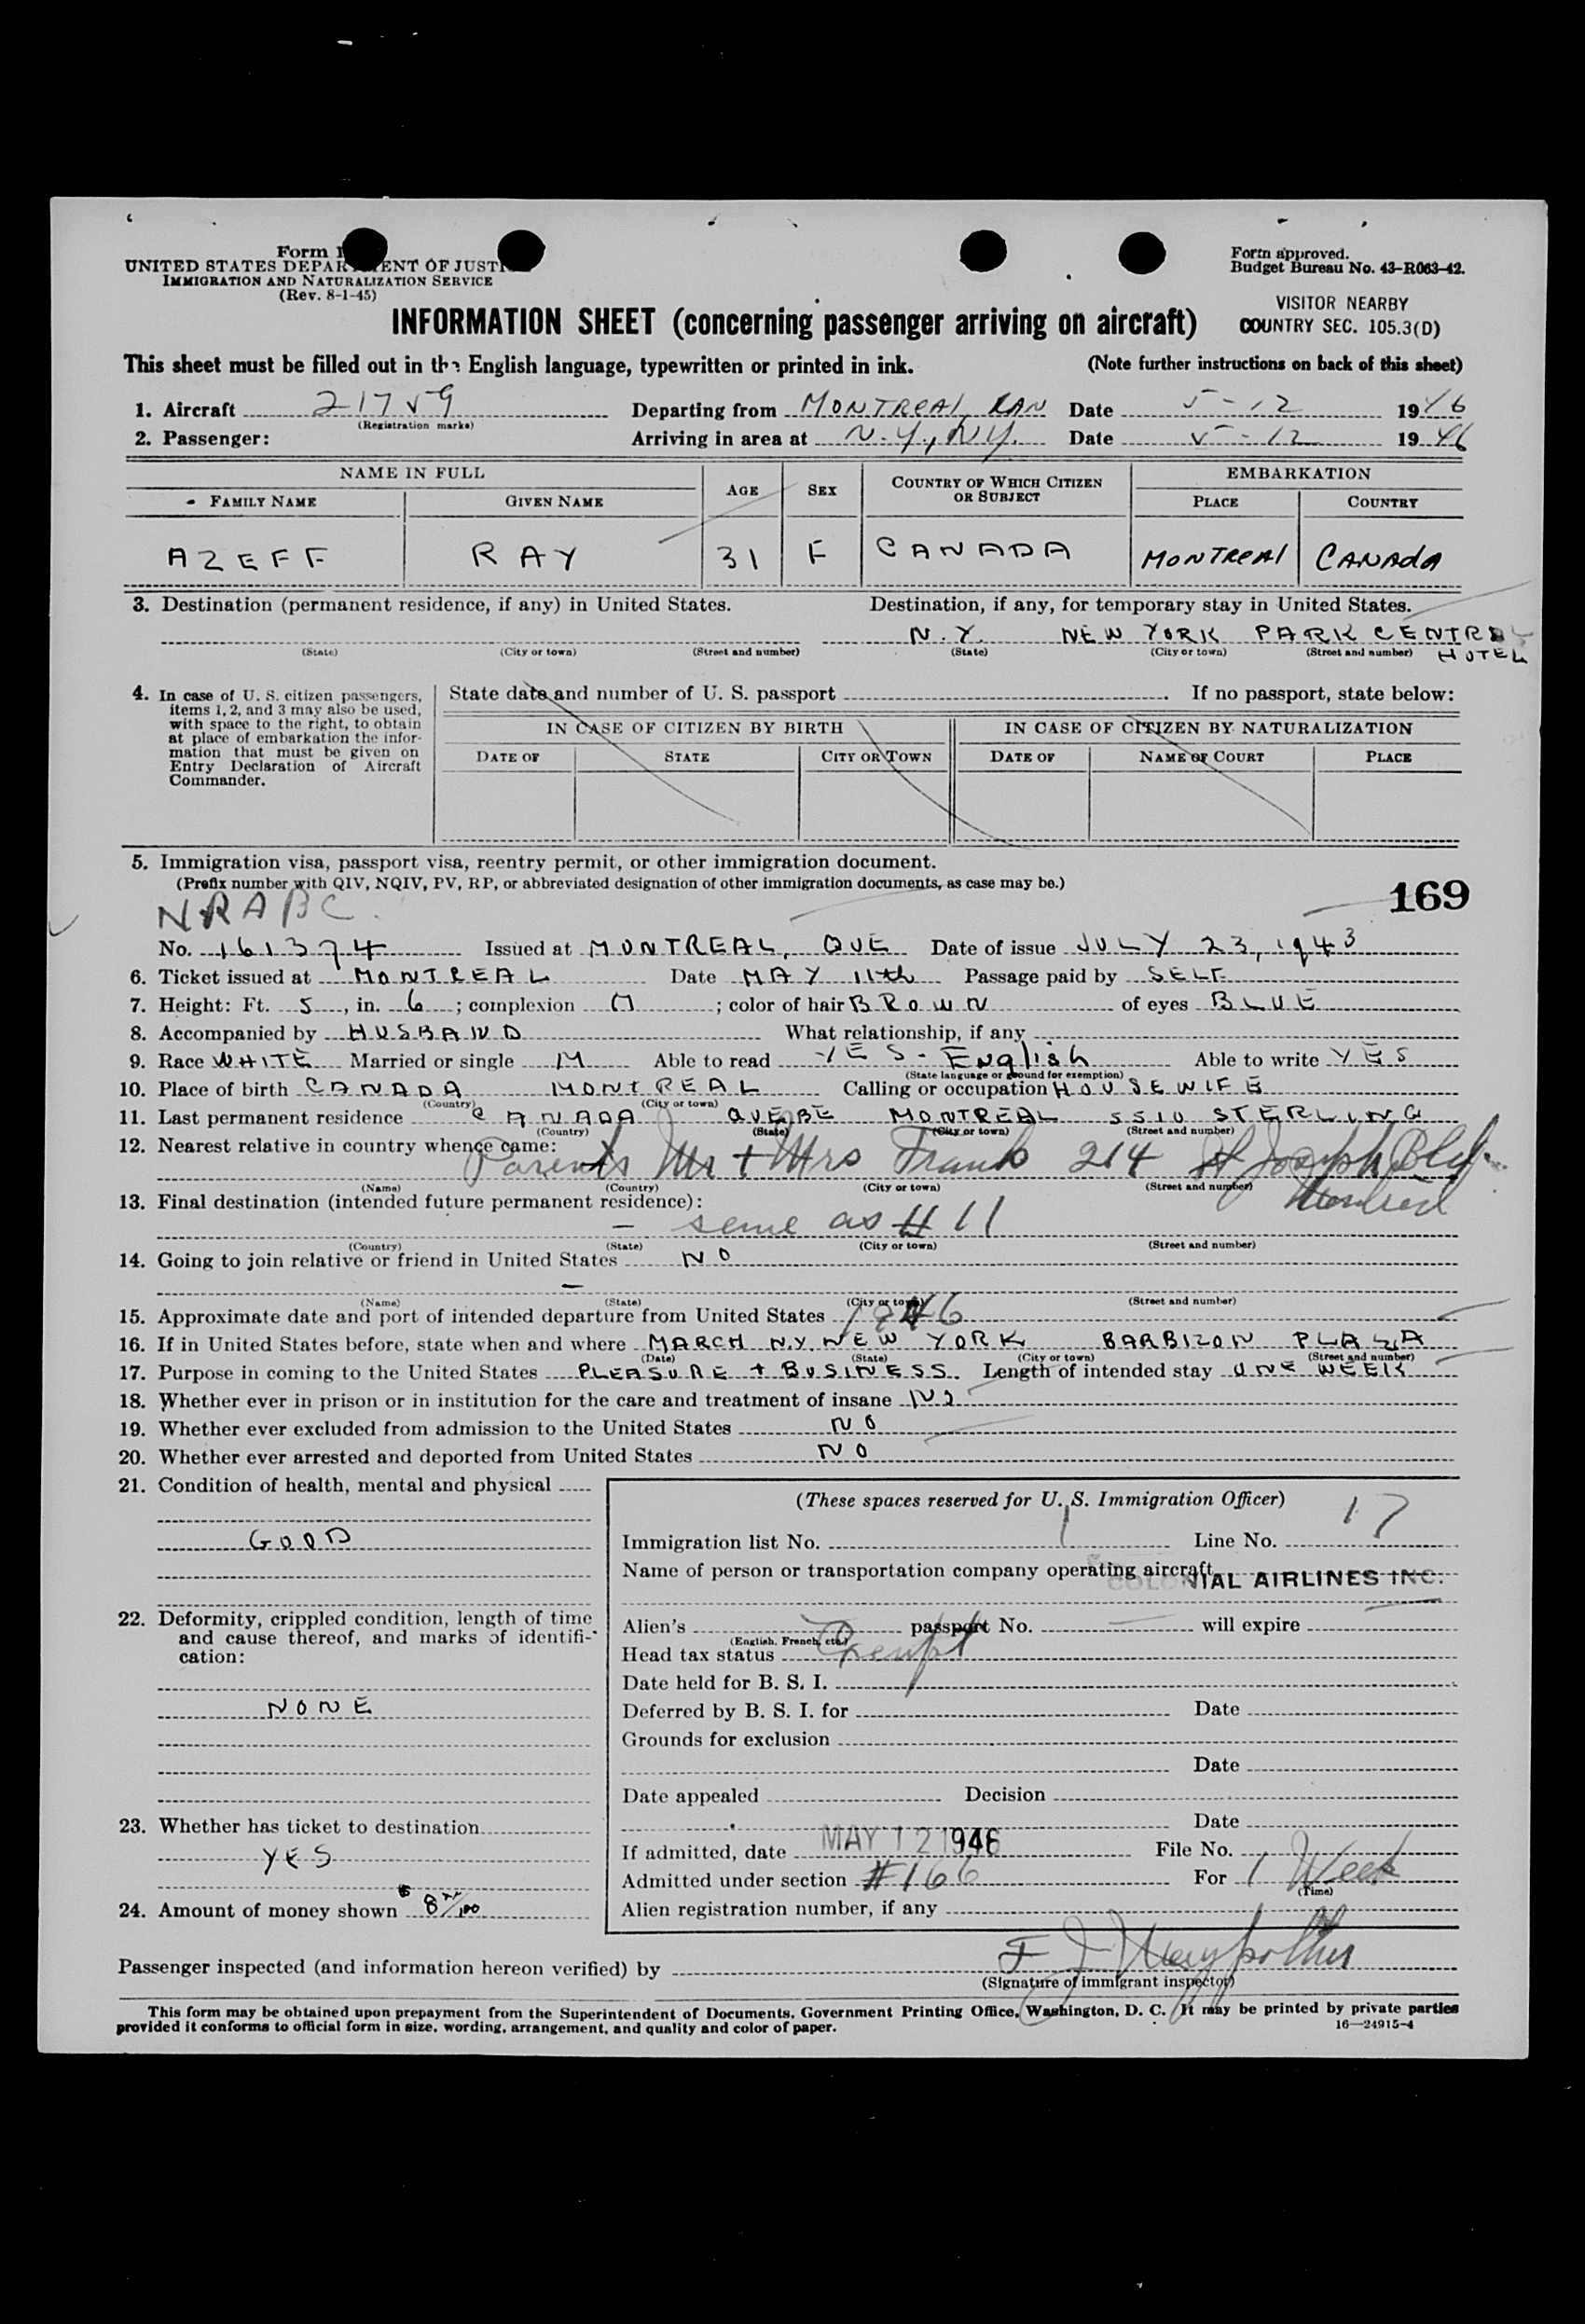 Form I
UNITED STATES DEPARTMENT OF JUSTICE
IMMIGRATION AND NATURALIZATION SERVICE
(Rev. 8-1-45)
Form approved.
Budget Bureau No. 43-R063-42.
VISITOR NEARBY
COUNTRY SEC. 105.3(D)
INFORMATION SHEET (concerning passenger arriving on aircraft)
This sheet must be filled out in the English language, typewritten or printed in ink. (Note further instructions on back of this sheet)
1. Aircraft 21759 Departing from MONTREAL, CAN Date 5-12 1946
(Registration marks)
2. Passenger: Arriving in area at N.Y., N.Y. Date 5-12 1946
NAME IN FULL AGE SEX COUNTRY OF WHICH CITIZEN OR SUBJECT EMBARKATION
FAMILY NAME GIVEN NAME PLACE COUNTRY
AZEFF RAY 31 F CANADA MONTREAL CANADA
3. Destination (permanent residence, if any) in United States. Destination, if any, for temporary stay in United States.
N.Y. NEW YORK PARK CENTRAL HOTEL
(State) (City or town) (Street and number) (State) (City or town) (Street and number)
4. In case of U. S. citizen passengers, items 1, 2, and 3 may also be used, with space to the right, to obtain at place of embarkation the information that must be given on Entry Declaration of Aircraft Commander.
State date and number of U. S. passport . If no passport, state below:
IN CASE OF CITIZEN BY BIRTH IN CASE OF CITIZEN BY NATURALIZATION
DATE OF STATE CITY OR TOWN DATE OF NAME OF COURT PLACE
5. Immigration visa, passport visa, reentry permit, or other immigration document.
(Prefix number with QIV, NQIV, PV, RP, or abbreviated designation of other immigration documents, as case may be.)
169
NRABC.
No. 161374 Issued at MONTREAL, QUE Date of issue JULY 23, 1943
6. Ticket issued at MONTREAL Date MAY 11th Passage paid by SELF
7. Height: Ft. 5, in. 6; complexion M; color of hair BROWN of eyes BLUE
8. Accompanied by HUSBAND What relationship, if any
9. Race WHITE Married or single M Able to read YES - English Able to write YES
(State language or ground for exemption)
10. Place of birth CANADA MONTREAL Calling or occupation HOUSEWIFE
(Country) (City or town)
11. Last permanent residence CANADA QUEBE MONTREAL 5510 STERLING
(Country) (State) (City or town) (Street and number)
12. Nearest relative in country whence came:
Parents Mr + Mrs Frank 214 St Joseph Blv. Montreal
(Name) (Country) (City or town) (Street and number)
13. Final destination (intended future permanent residence):
— same as # 11
(Country) (State) (City or town) (Street and number)
14. Going to join relative or friend in United States NO
—
(Name) (State) (City or town) (Street and number)
15. Approximate date and port of intended departure from United States 1946
16. If in United States before, state when and where MARCH N.Y. NEW YORK BARBIZON PLAZA
(Date) (State) (City or town) (Street and number)
17. Purpose in coming to the United States PLEASURE + BUSINESS. Length of intended stay ONE WEEK
18. Whether ever in prison or in institution for the care and treatment of insane NO
19. Whether ever excluded from admission to the United States NO
20. Whether ever arrested and deported from United States NO
21. Condition of health, mental and physical
GOOD
22. Deformity, crippled condition, length of time and cause thereof, and marks of identification:
NONE
23. Whether has ticket to destination
YES
24. Amount of money shown $8 xx/100
(These spaces reserved for U. S. Immigration Officer)
Immigration list No. 1 Line No. 17
Name of person or transportation company operating aircraft
COLONIAL AIRLINES INC.
Alien's passport No. — will expire —
(English, French, etc.)
Head tax status Exempt
Date held for B. S. I.
Deferred by B. S. I. for Date
Grounds for exclusion
Date
Date appealed Decision
Date
If admitted, date MAY 12 1946 File No.
Admitted under section #166 For 1 Week
(Time)
Alien registration number, if any
Passenger inspected (and information hereon verified) by F J
(Signature of immigrant inspector)
This form may be obtained upon prepayment from the Superintendent of Documents, Government Printing Office, Washington, D. C. It may be printed by private parties
provided it conforms to official form in size, wording, arrangement, and quality and color of paper.
16—24915-4